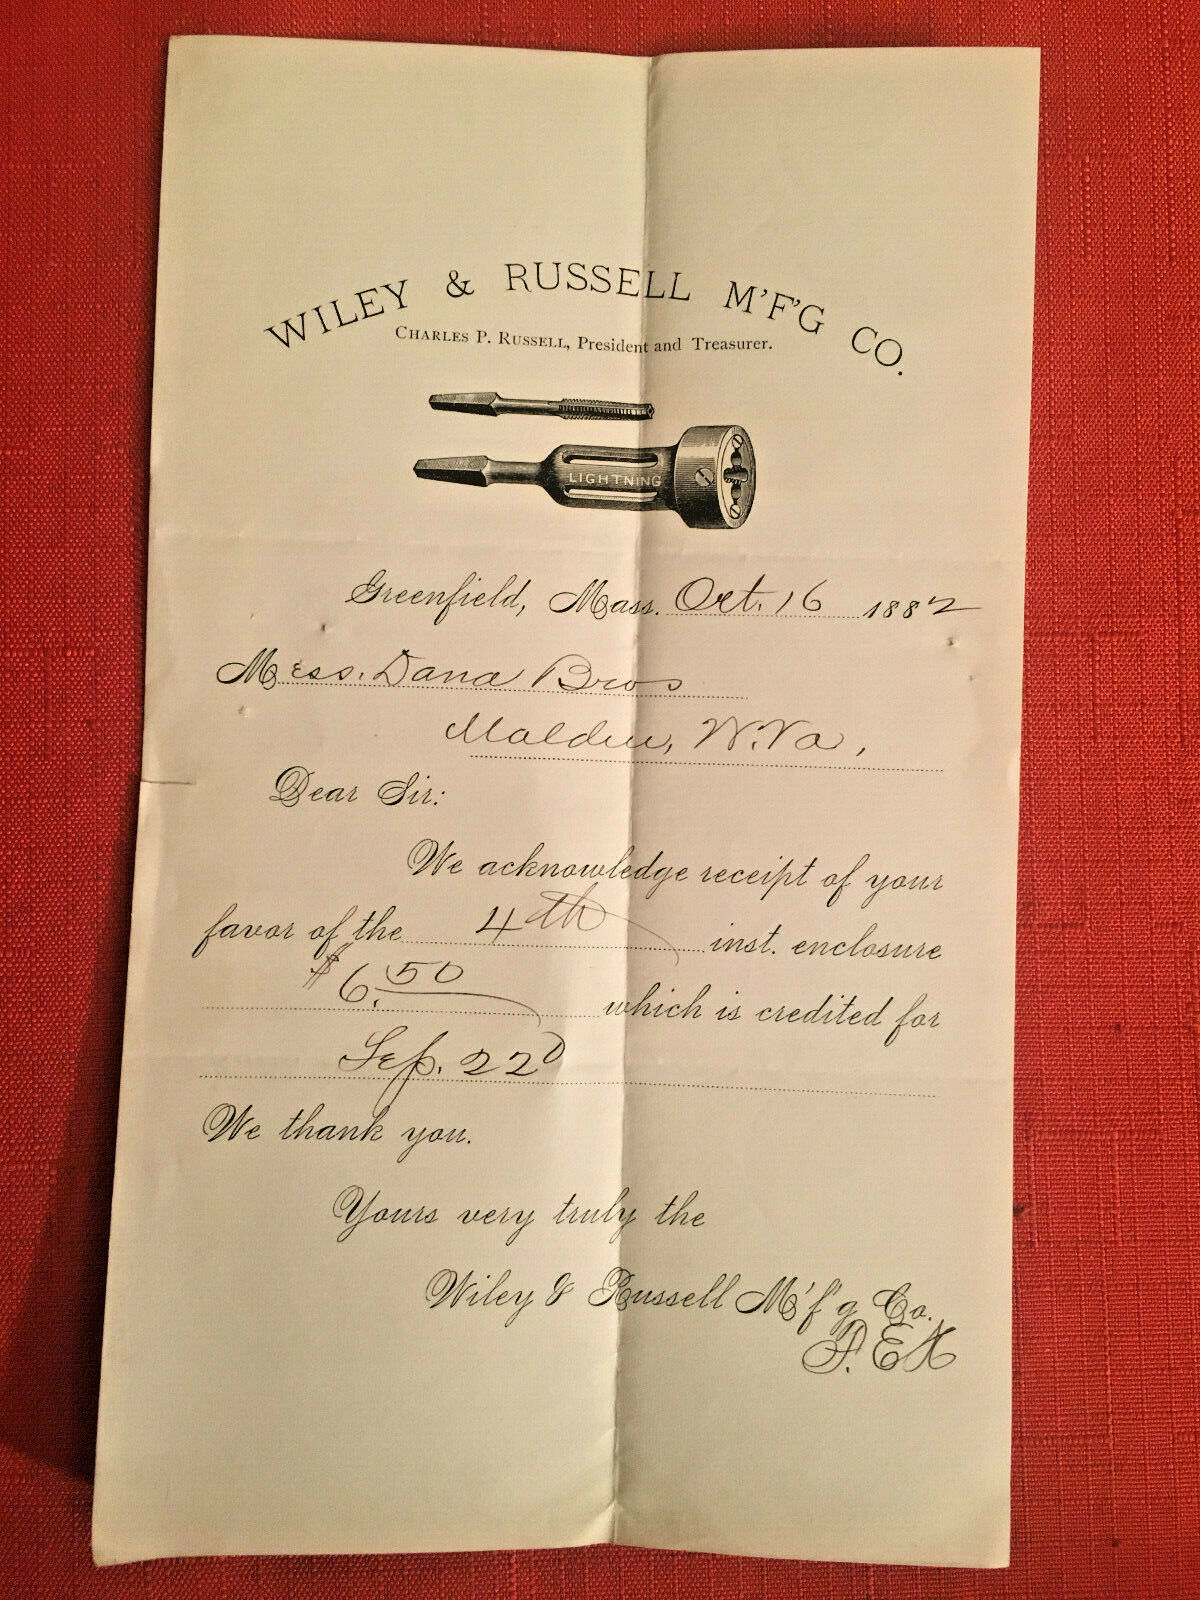 WILEY & RUSSELL M'F'G CO.
CHARLES P. RUSSELL, President and Treasurer.
LIGHTNING
Greenfield, Mass. Oct. 16 1882
Mess. Dana Bros
Malden, W. Va,
Dear Sir:
We acknowledge receipt of your
favor of the 4th inst. enclosure
$6.50 which is credited for
Sep. 22d
We thank you.
Yours very truly the
Wiley & Russell M'f'g Co.